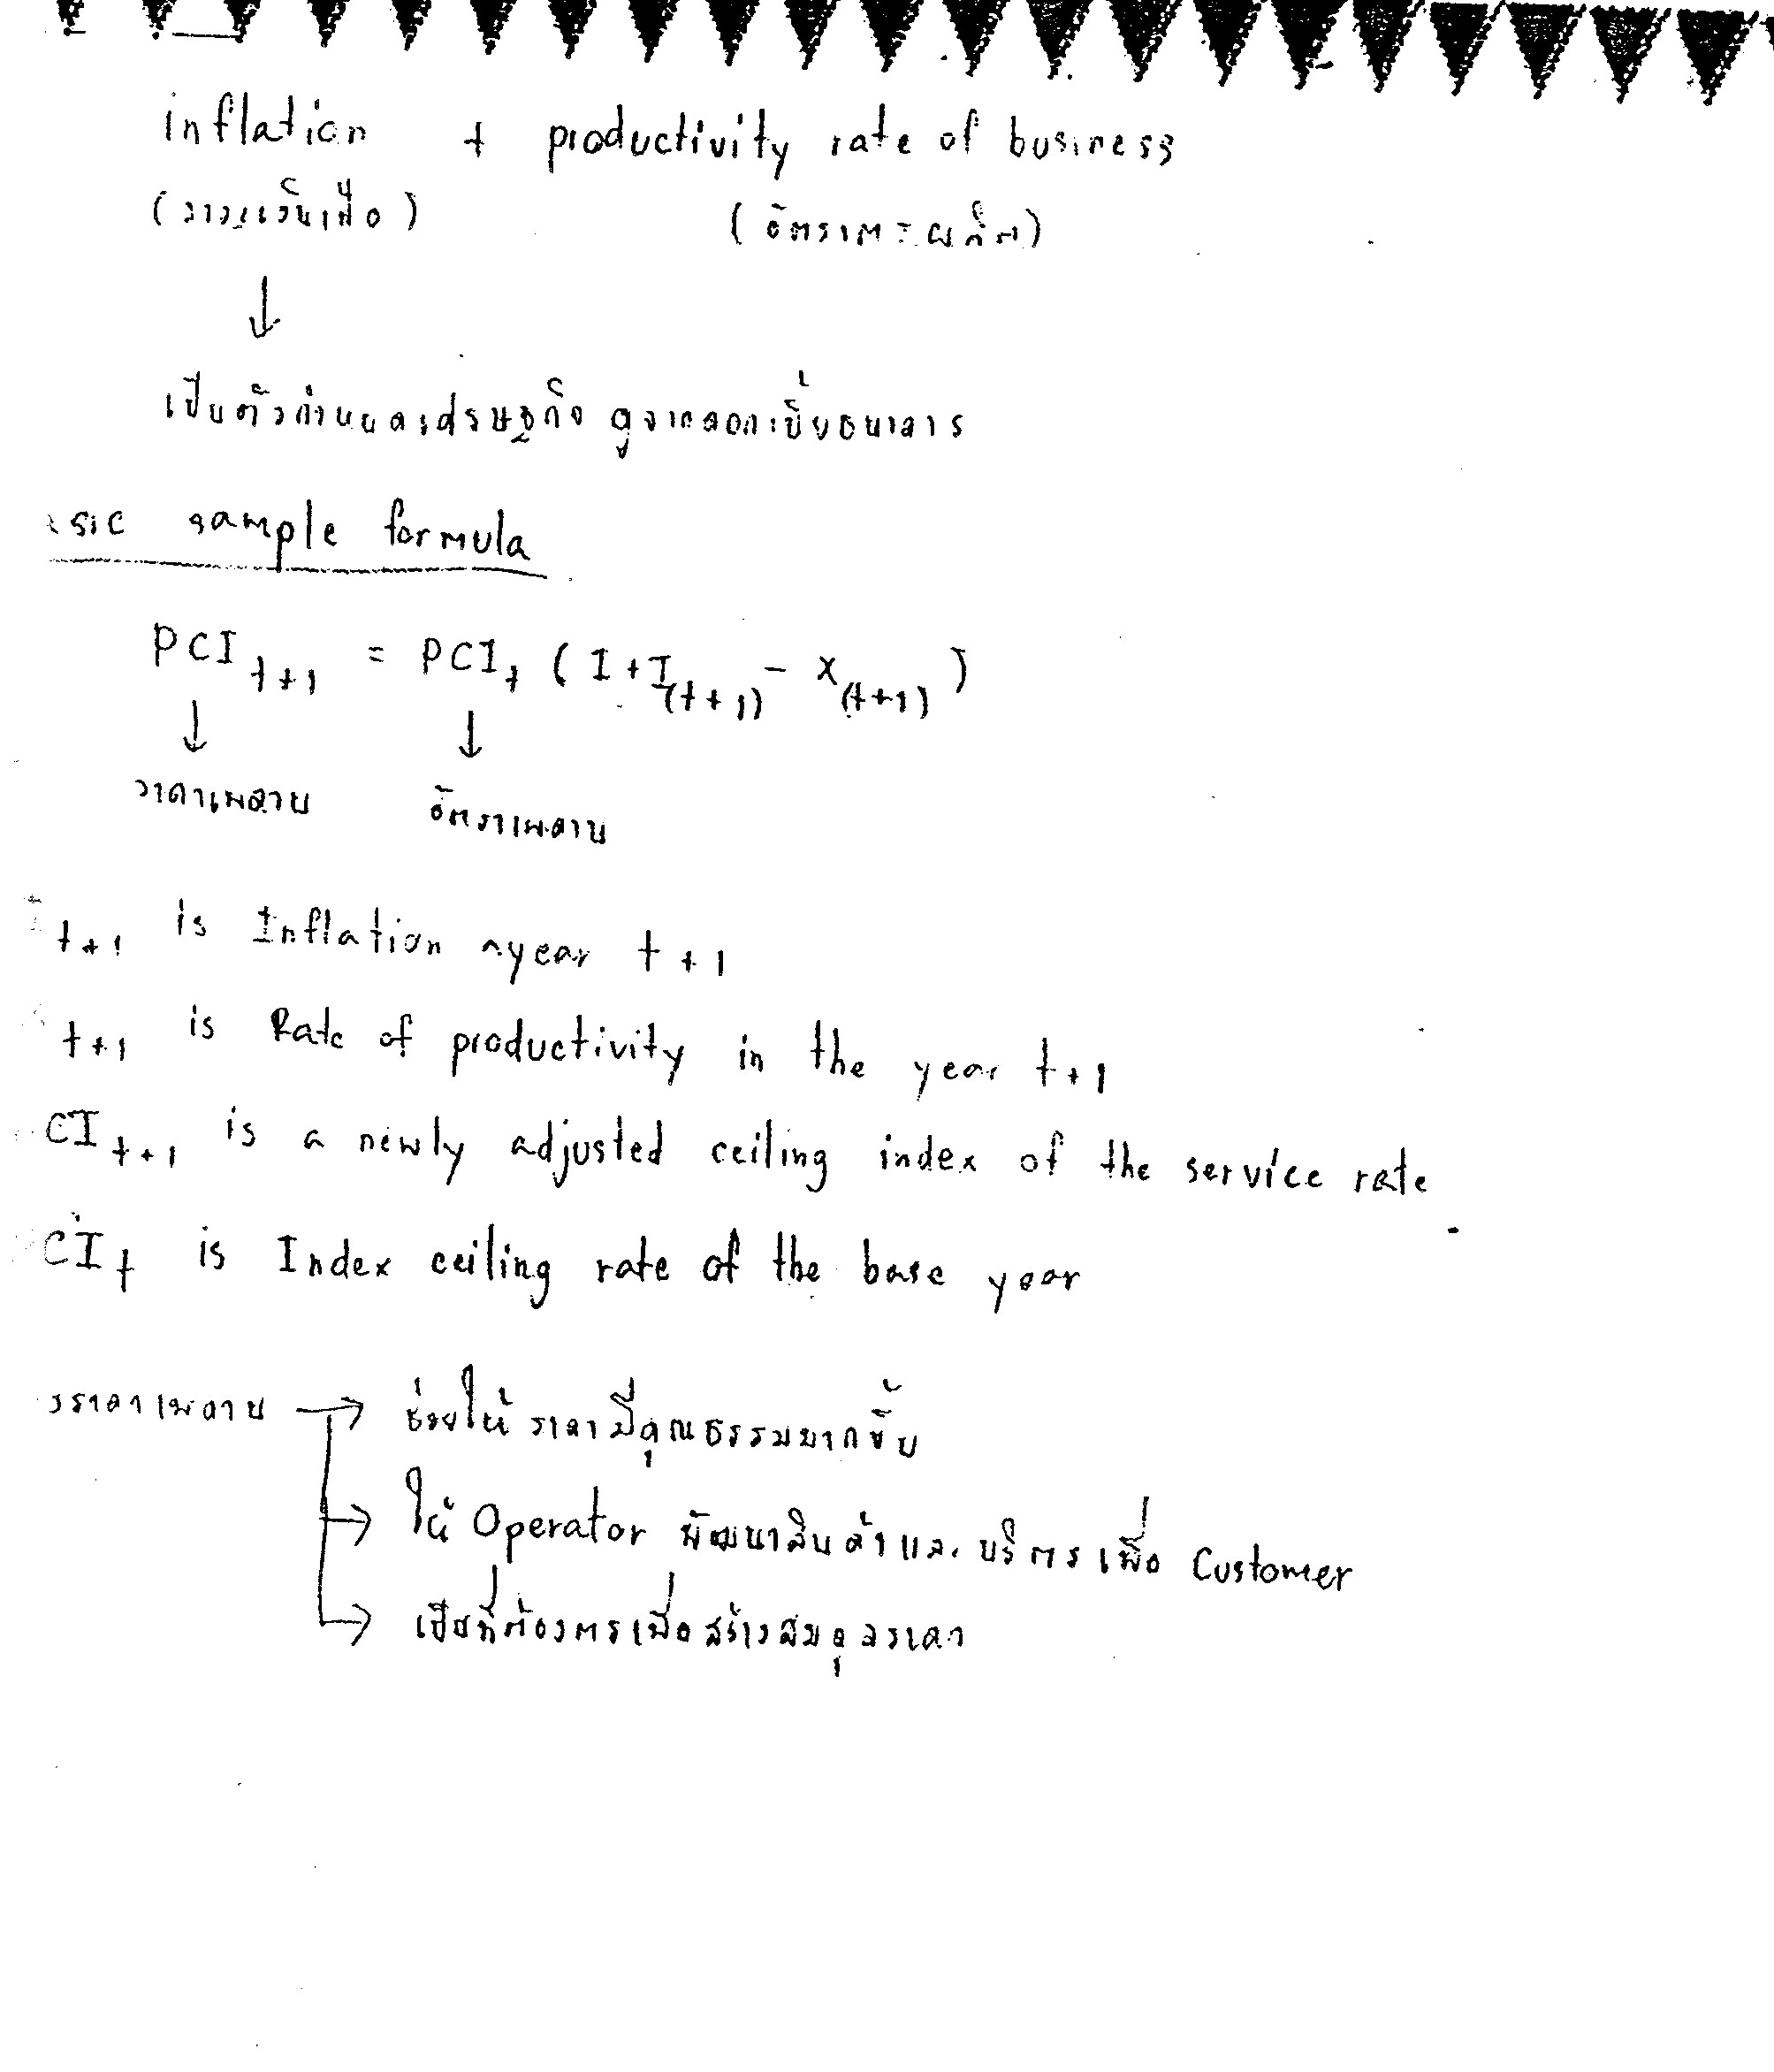 inflation + productivity rate of business
(ภาวะเงินเฟ้อ) (อัตราการผลิต)
↓
เป็นตัวกำหนดเศรษฐกิจ ดูจากดอกเบี้ยธนาคาร
sic sample formula
PCI t+1 = PCI t ( I + I (t+1) - X (t+1) )
↓ ↓
ราคาเพดาน อัตราเพดาน
t+1 is Inflation year t+1
t+1 is Rate of productivity in the year t+1
CI t+1 is a newly adjusted ceiling index of the service rate
CI t is Index ceiling rate of the base year
ราคาเพดาน → ช่วยให้ราคามีคุณธรรมมากขึ้น
→ ให้ Operator พัฒนาสินค้าและบริการเพื่อ Customer
→ เป็นที่ต้องการเพื่อสร้างสมดุลราคา